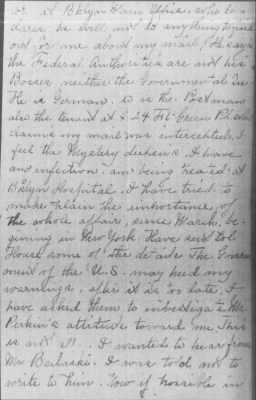 or at Bklyn Main office, who de-
clares, he will not do anything to aid
or for me about my mail. He says
the Federal Authorities are not his
Bosses, neither the Governmental
He is German, so is the Postman
also the tenant at 324 Ft. Green Pl. who
claims my mail was intercepted. I
feel the Mystery deepens. I have
ano infection. am being treated at
Bklyn Hospital. I have tried to
make plain the importance of
the whole affair, since March, be-
gining in New York. Have sent Col
House some of the details. The Govern-
ment of the U.S. may heed my
warnings, after it is too late. I
have asked them to investigate Mr
Perkins attitude toward me. This
is not all. I wanted to hear from
Mr Bielaski. I was told not to
write to him. Now if possible in